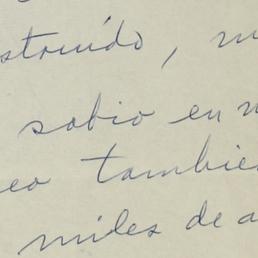 struído, m
sabio en m
eo también
miles de a